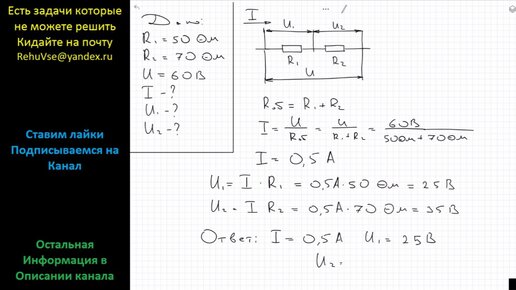 Есть задачи которые
не можете решить
Кидайте на почту
RehuVse@yandex.ru
Ставим лайки
Подписываемся на
Канал
Остальная
Информация в
Описании канала
Дано:
R₁ = 50 Ом
R₂ = 70 Ом
U = 60В
I - ?
U₁ - ?
U₂ - ?
I
U₁ U₂
R₁ R₂
U
Rэ = R₁ + R₂
I = U/Rэ = U/(R₁ + R₂) = 60В/(50Ом + 70Ом)
I = 0,5А
U₁ = I · R₁ = 0,5А · 50 Ом = 25 В
U₂ = I R₂ = 0,5А · 70 Ом = 35В
Ответ: I = 0,5А U₁ = 25В
U₂ =